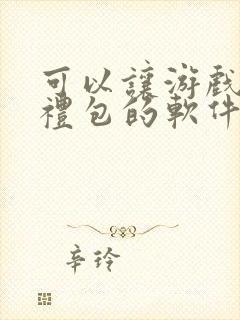 可以讓游戲
禮包的軟件
辛玲